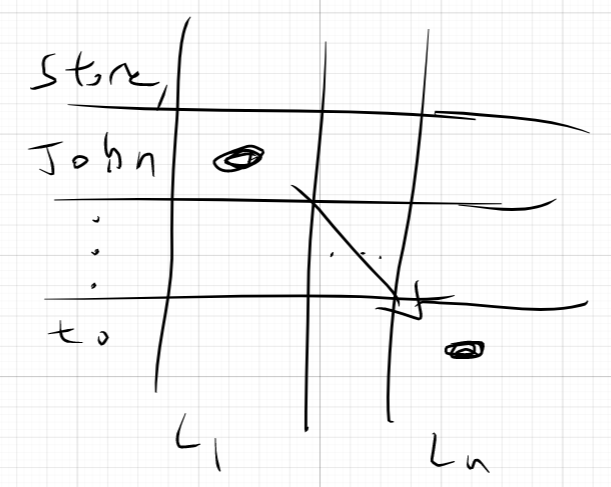 Store,
John
...
to
L1 Ln